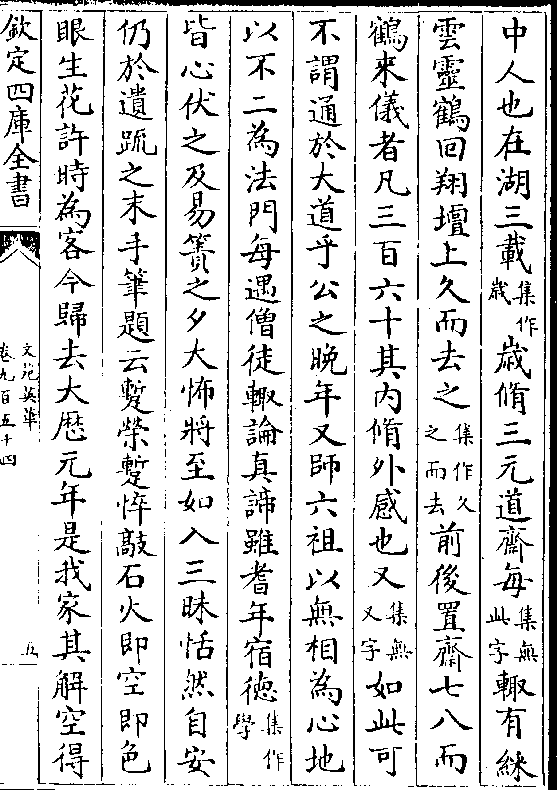 中人也在湖三載集作歳歳脩三元道齋每集無此字輙有綵
雲靈鶴回翔壇上久而去之集作久之而去前後置齋七八而
鶴来儀者凡三百六十其内脩外感也又集無又字如此可
不謂通於大道乎公之晩年又師六祖以無相為心地
以不二為法門每遇僧徒輙論真諦雖耆年宿徳集作學
皆心伏之及易簀之夕大怖將至如入三昧恬然自安
仍於遺䟽之末手筆題云蹔榮蹔悴敲石火即空即色
眼生花許時為客今歸去大歴元年是我家其解空得
欽定四庫全書
文苑英華
卷九百五十四
五